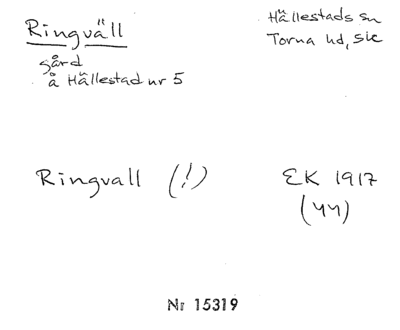 Ringväll
gård
å Hällestad nr 5
Hällestads sn
Torna hd, Sk
Ringvall (!)
EK 1917
(44)
Nr 15319